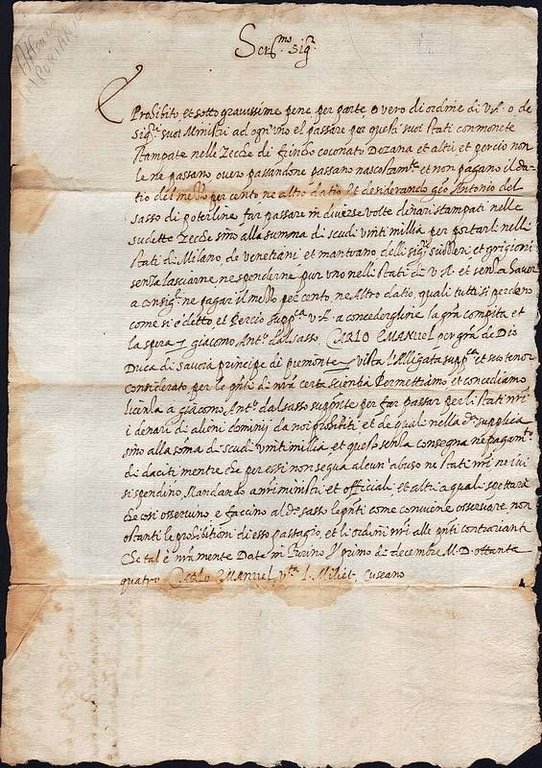 Ser.mo Sig.r
E Prohibito, et sotto gravissime pene per parte o vero di ordine di V.A. o de
sig.ri suoi Ministri ad ogn'uno el passare per questi suoi stati con monete
stampate nelle Zecche di coconato Dezana et altri et percio non
le ne passano overo passandone passano nascostam.te et non pagano il da
tio del mezzo per cento ne altro datio Et desiderando gio Antonio del
sasso di poterline far passare in diverse volte denari stampati nelle
sudette Zecche sino alla summa di scudi vinti millia per portarli nelli
stati di Milano de venetiani et mantuano delli sig.ri suizzeri et grigioni
senza lasciarne ne spenderne pur uno nelli stati de V.A. et senza haver
a consig.re ne pagar il mezzo per cento ne altro datio, quali tutti si perdeno
come si e detto et percio supp.ca V.A. a concederglene la gra compita et
la spera giacomo Ant.o dal sasso. CARLO EMANUEL per gra de Dio
Duca di savoia principe di piemonte vista l'alligata supp.ca et suo tenor
considerato per le p.nti de nra certa scientia Permettiamo et concediamo
licenza a giacomo Ant.o dal sasso supp.nte per far passar per li stati nri
i denari di alieni dominii da noi prohibiti et de quali nella d.a supplica
sino alla soma di scudi vinti millia et questo senza consegna ne pagam.to
di daciti mentre che per essi non segua alcun abuso ne stati nri ne ivi
si spendino, Mandando a ministri et officiali et altri a quali spettara
che cosi osservino e faccino al d.o sasso le p.nti come conviene osservare non
ostanti le prohibitioni di esso passagio, et li ordini nri alle p.nti contrarianti
Che tal è nra mente Date in Turino il primo de decembre M.D. ottanta
quatro Carlo Emanuel v.ta Milliet, Cuseano